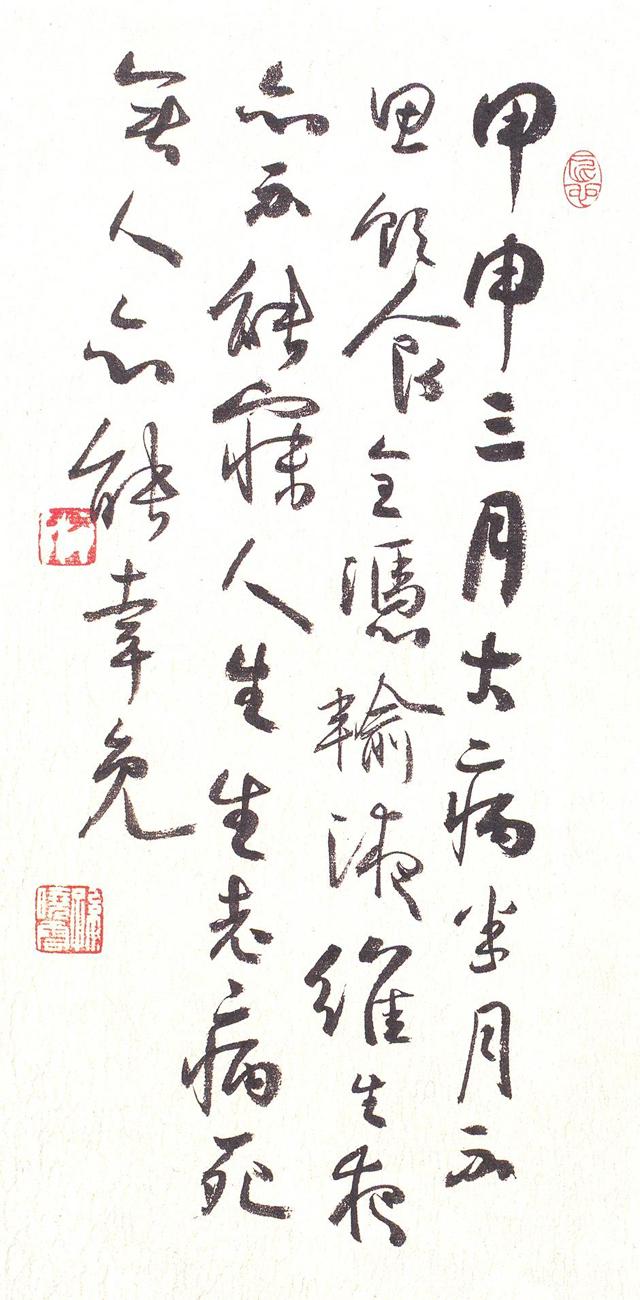 甲申三月大病半月不
思飲食全憑輸液維生夜
亦不能寐人生生老病死
無人亦能幸免
孫曉雲